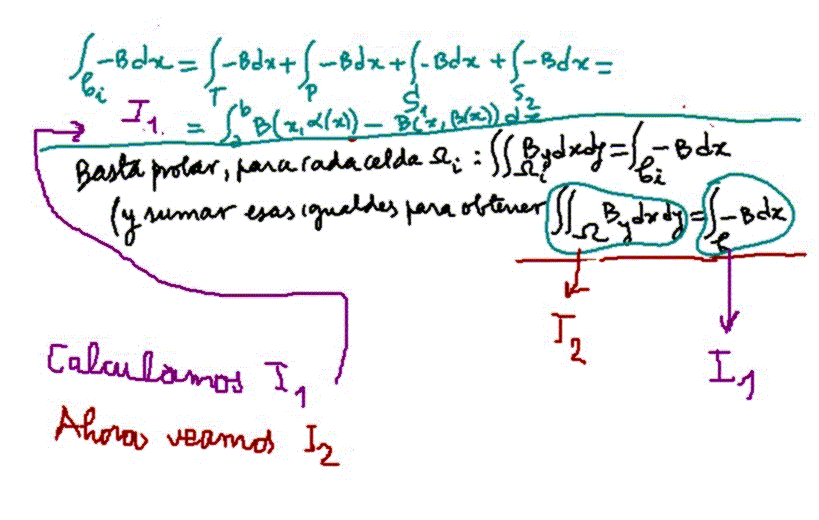 ∫_{C_i} -B dx = ∫_T -B dx + ∫_P -B dx + ∫_{S_1} -B dx + ∫_{S_2} -B dx =
I_1 = ∫_a^b B(x, α(x)) - B(x, β(x)) dx
Basta probar, para cada celda Ω_i : ∬_{Ω_i} B_y dx dy = ∫_{C_i} -B dx
(y sumar esas igualdes para obtener ∬_Ω B_y dx dy = ∫_C -B dx
I_2
I_1
Calculamos I_1
Ahora veamos I_2